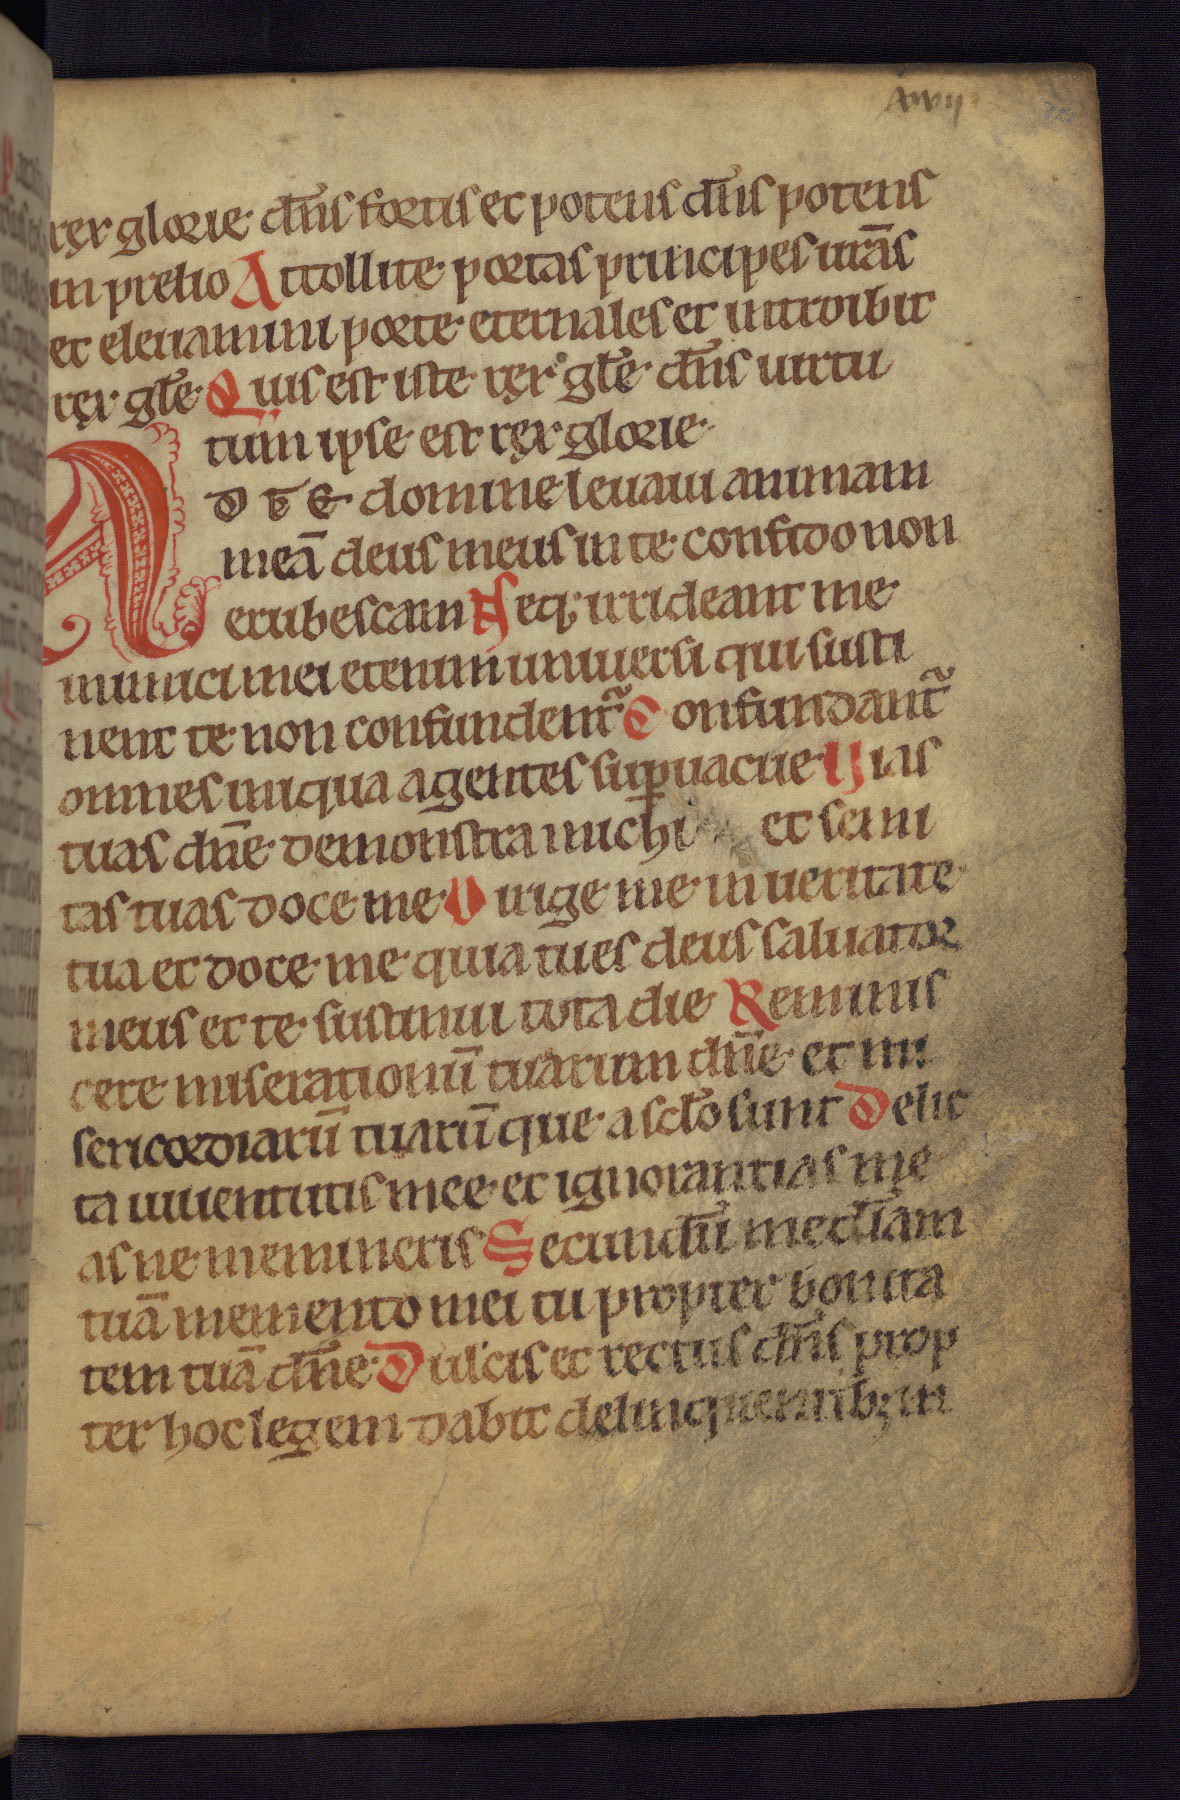 rex glorie· dn̄s fortis et potens dn̄s potens
in prelio Attollite portas principes ur̄as
et eleuamini porte eternales et introibit
rex gl̄e· Quis est iste rex gl̄e· dn̄s uirtu
tum ipse est rex glorie·
AD TE domine leuaui animam
meā deus meus in te confido non
erubescam Neq; irrideant me·
inimici mei etenim uniuersi qui susti
nent te non confundentr̃ Confundantr̃
omnes iniqua agentes suꝑuacue Vias
tuas dn̄e demonstra michi et semi
tas tuas doce me· Dirige me in ueritate
tua et doce me quia tu es deus saluator
meus et te sustinui tota die Reminis
cere miserationū tuarum dn̄e· et mi
sericordiarū tuarū que a scl̄o sunt Delic
ta iuuentutis mee et ignorantias me
as ne memineris Secundū mcd̄iam
tuā memento mei tu propter bonita
tem tuā dn̄e· Dulcis et rectus dn̄s prop
ter hoc legem dabit delinquentib; in